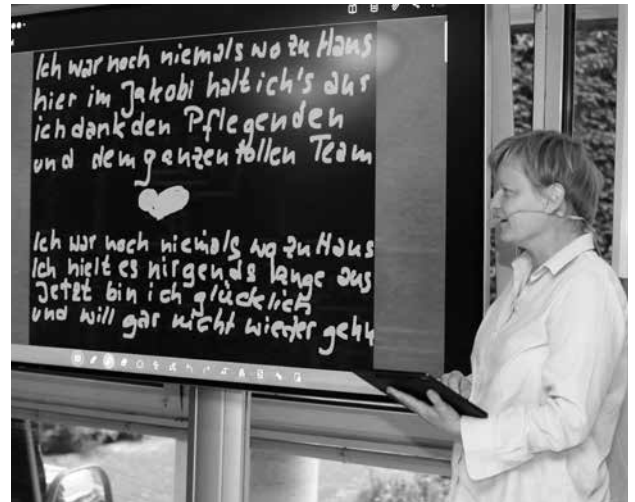 Ich war noch niemals wo zu Haus
hier im Jakobi halt ich's aus
ich dank den Pflegenden
und dem ganzen tollen Team
Ich war noch niemals wo zu Haus
Ich hielt es nirgends lange aus
Jetzt bin ich glücklich
und will gar nicht wieder gehn